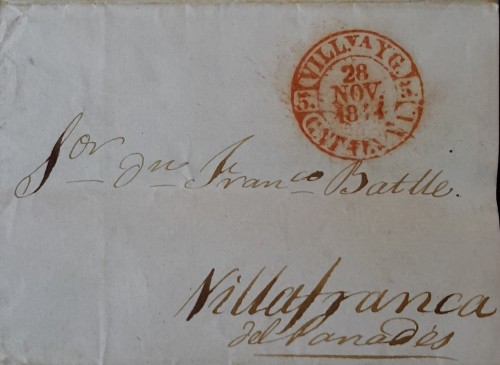 VILLVA Y G.
28
NOV.
1844
CATALUÑA
Sor. dn. Franco. Batlle.
Villafranca
del Panadés